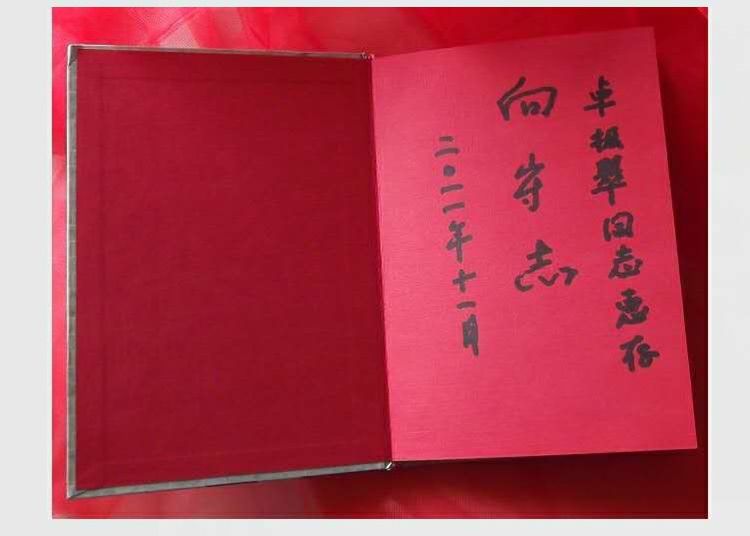 卓振群同志惠存
向守志
二〇一一年十一月